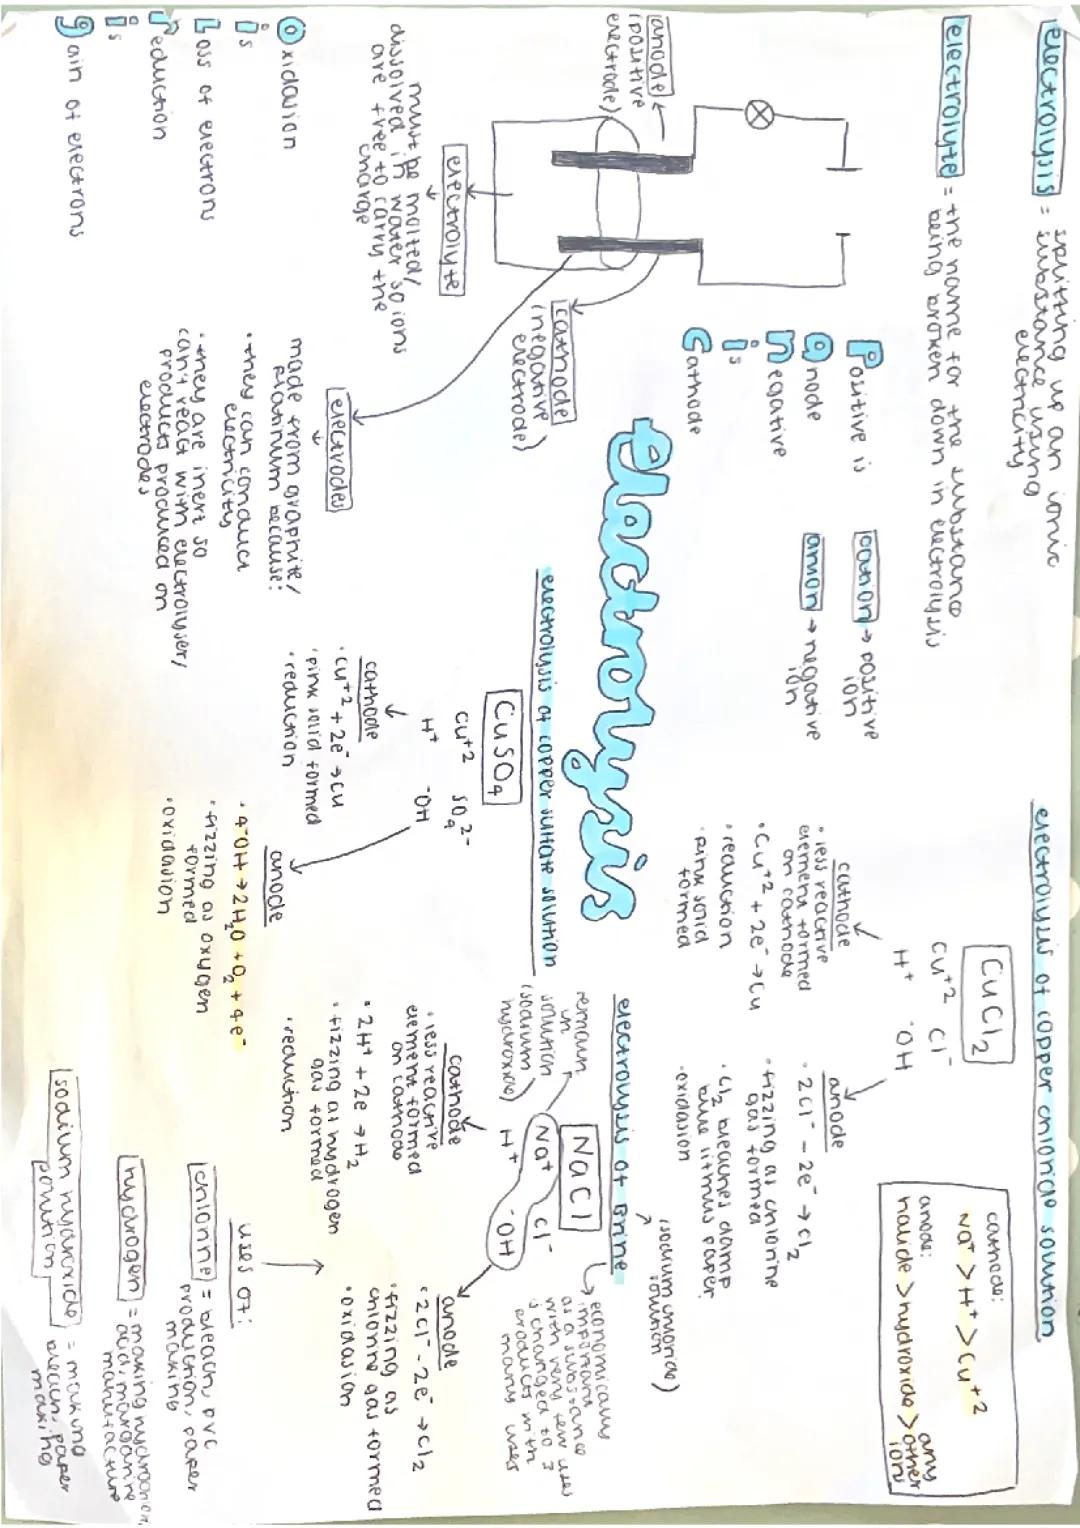 electrolysis = splitting up an ionic
substance using
electricity
electrolyte = the name for the substance
being broken down in electrolysis
Positive is
anode
negative
is
cathode
cation → positive
ion
anion → negative
ion
anode
(positive
electrode)
cathode
(negative
electrode)
electrolyte
must be molted/
dissolved in water so ions
are free to carry the
charge
electrodes
made from graphite/
platinum because:
• they can conduct
electricity
• they are inert so
can't react with electrolyser/
products produced on
electrodes
Oxidation
is
Loss of electrons
reduction
is
gain of electrons
electrolysis
electrolysis of copper sulfate solution
CuSO4
Cu+2 SO4 2-
H+ -OH
cathode
• Cu+2 + 2e- → Cu
• pink solid formed
• reduction
anode
• 4-OH → 2H2O + O2 + 4e-
• fizzing as oxygen
formed
• oxidation
electrolysis of copper chloride solution
CuCl2
Cu+2 Cl-
H+ -OH
cathode
• less reactive
element formed
on cathode
• Cu+2 + 2e- → Cu
• reduction
• pink solid
formed
anode
• 2Cl- - 2e- → Cl2
• fizzing as chlorine
gas formed
• Cl2 bleaches damp
blue litmus paper
• oxidation
cathode:
Na+ > H+ > Cu+2
anode:
halide > hydroxide > any
other
ions
electrolysis of Brine
(sodium chloride)
solution
NaCl
economically
important
as a substance
with very few uses
is changed to 3
products with
many uses
remain
in
solution
(sodium
hydroxide)
Na+ Cl-
H+ -OH
cathode
• less reactive
element formed
on cathode
• 2H+ + 2e → H2
• fizzing as hydrogen
gas formed
• reduction
anode
• 2Cl- - 2e- → Cl2
• fizzing as
chlorine gas formed
• oxidation
uses of:
chlorine = bleach, PVC
production, paper
making
hydrogen = making hydrochloric
acid, margarine
manufacture
sodium hydroxide = making
solution bleach, paper
making